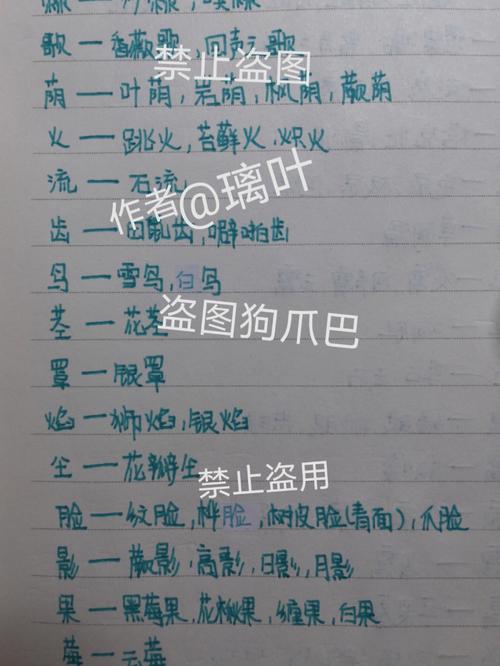 歌——蔷薇歌,回声之歌
禁止盗图
荫——叶荫,岩荫,枫荫,蕨荫
火——跳火,苔藓火,炽火
流——石流
作者@璃叶
齿——鼹齿,噼啪齿
鸟——雪鸟,白鸟
茎——花茎
盗图狗爪巴
罩——银罩
焰——狮焰,银焰
尘——花瓣尘
禁止盗用
脸——纹脸,桦脸,树皮脸(青面),爪脸
影——蕨影,高影,日影,月影
果——黑莓果,花楸果,缠果,白果
莓——云莓